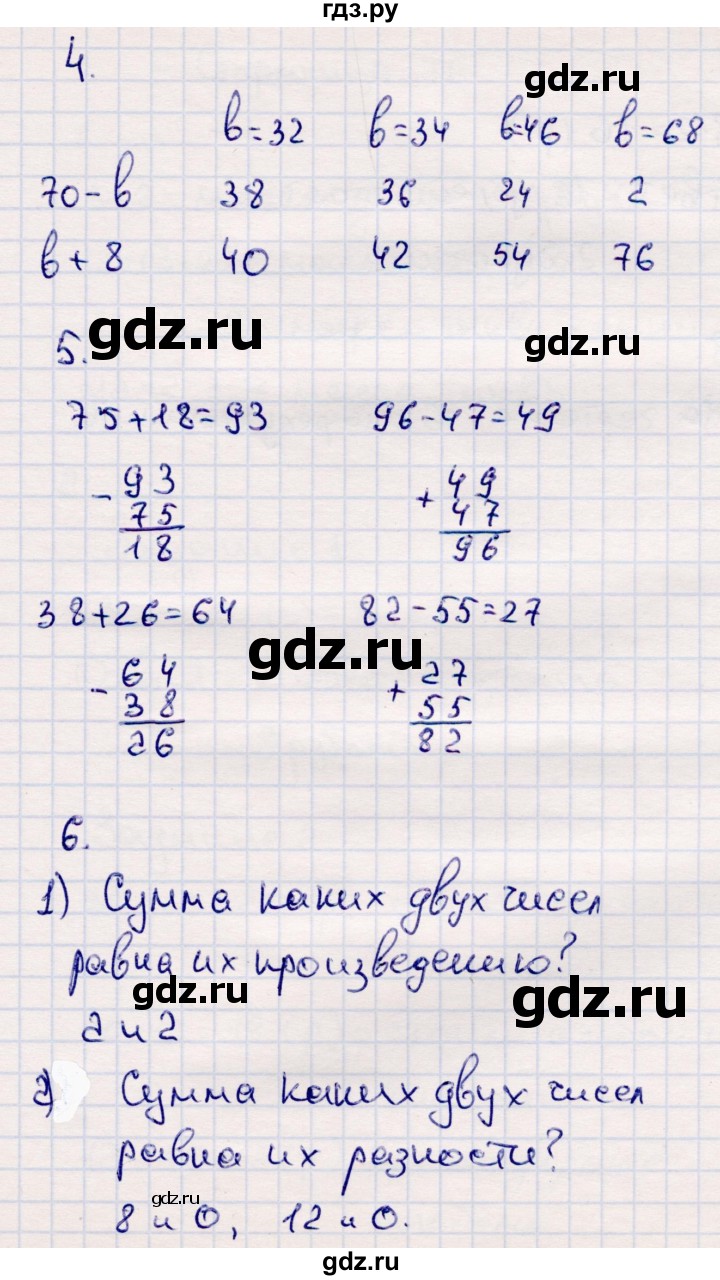 гдз.ру
4.
gdz.ru
в=32 в=34 в=46 в=68
70-в 38 36 24 2
в+8 40 42 54 76
gdz.ru
5.
gdz.ru
75+18=93 96-47=49
- 93 + 49
75 47
18 96
38+26=64 82-55=27
gdz.ru
- 64 + 27
38 55
26 82
6.
1) Сумма каких двух чисел
равна их произведению?
gdz.ru gdz.ru
2 и 2
2) Сумма каких двух чисел
равна их разности?
gdz.ru
8 и 0, 12 и 0.
gdz.ru